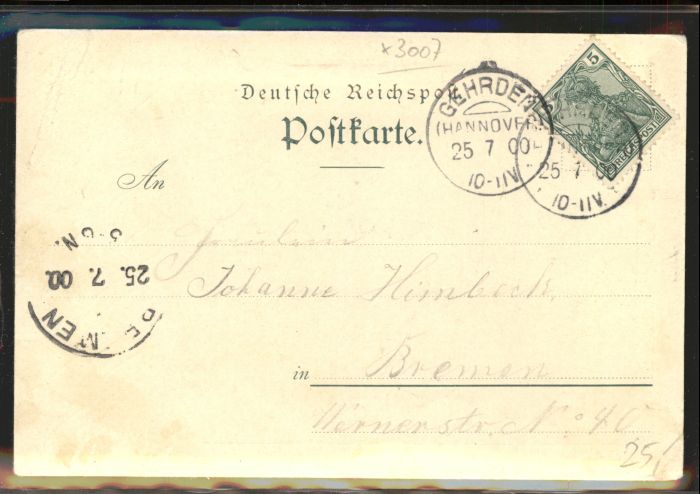 x3007
Deutsche Reichspost
Postkarte.
GEHRDEN
(HANNOVER)
25 7 00
10-11V.
5
REICHSPOST
25 7 00
10-11V.
An
Fräulein
Johanne Himbeck,
in Bremen
BREMEN
25. 7. 00.
N.
25,